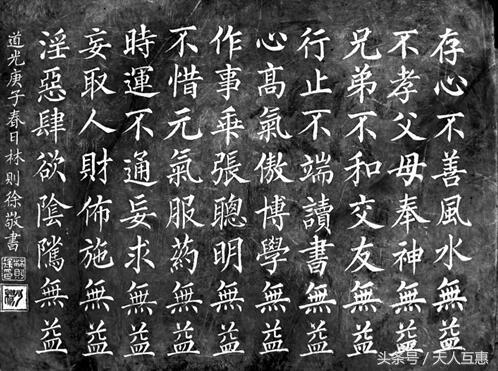 存心不善風水無益
不孝父母奉神無益
兄弟不和交友無益
行止不端讀書無益
心髙氣傲博學無益
作事乖張聰明無益
不惜元氣服藥無益
時運不通妄求無益
妄取人財佈施無益
淫惡肆欲陰隲無益
道光庚子春日林則徐敬書
头条号／天人互惠